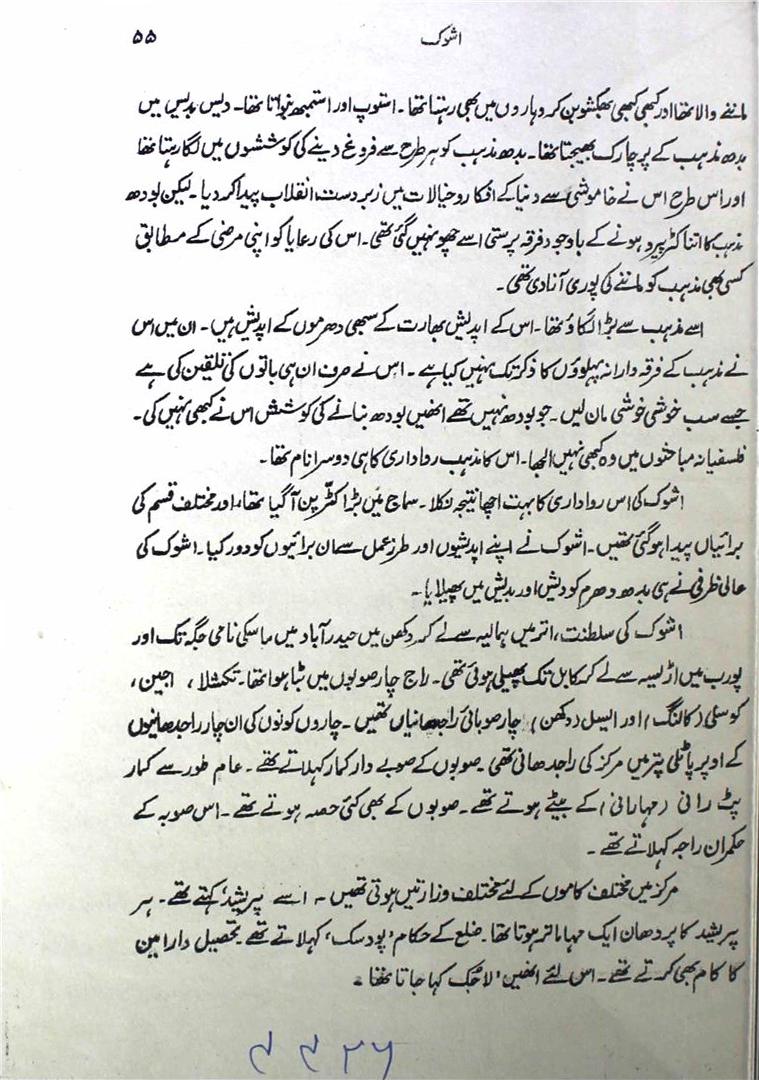 اشوک ۵۵
ماننے والا تھا اور کبھی کبھی بھکشو بن کر وہاروں میں بھی رہتا تھا۔ استوپ اور استمبھ بنواتا تھا۔ دیس بدیس میں
بدھ مذہب کے پرچارک بھیجتا تھا۔ بدھ مذہب کو ہر طرح سے فروغ دینے کی کوششوں میں لگا رہتا تھا
اور اس طرح اس نے خاموشی سے دنیا کے افکار و خیالات میں زبردست انقلاب پیدا کر دیا۔ لیکن بودھ
مذہب کا اتنا کٹر پیرو ہونے کے باوجود فرقہ پرستی اسے چھو نہیں گئی تھی۔ اس کی رعایا کو اپنی مرضی کے مطابق
کسی بھی مذہب کو ماننے کی پوری آزادی تھی۔
اسے مذہب سے بڑا لگاؤ تھا۔ اس کے اپدیش بھارت کے سبھی دھرموں کے اپدیش ہیں۔ ان میں اس
نے مذہب کے فرقہ دارانہ پہلوؤں کا ذکر تک نہیں کیا ہے۔ اس نے صرف ان ہی باتوں کی تلقین کی ہے
جسے سب خوشی خوشی مان لیں۔ جو بودھ نہیں تھے انھیں بودھ بنانے کی کوشش اس نے کبھی نہیں کی۔
فلسفیانہ مباحثوں میں وہ کبھی نہیں الجھا۔ اس کا مذہب رواداری کا ہی دوسرا نام تھا۔
اشوک کی اس رواداری کا بہت اچھا نتیجہ نکلا۔ سماج میں بڑا کٹّرپن آ گیا تھا، اور مختلف قسم کی
برائیاں پیدا ہو گئی تھیں۔ اشوک نے اپنے اپدیشوں اور طرز عمل سے ان برائیوں کو دور کیا۔ اشوک کی
عالی ظرفی نے ہی بدھ دھرم کو دیش اور بدیش میں پھیلایا۔
اشوک کی سلطنت، اتر میں ہمالیہ سے لے کر دکھن میں حیدرآباد میں ماسکی نامی جگہ تک اور
پورب میں اڑیسہ سے لے کر کابل تک پھیلی ہوئی تھی۔ راج چار صوبوں میں بٹا ہوا تھا۔ تکششلا، اجین،
کوسلی (کالنگ) اور ایسل (دکھن) چار صوبائی راجدھانیاں تھیں۔ چاروں کونوں کی ان چار راجدھانیوں
کے اوپر پاٹلی پتر میں مرکز کی راجدھانی تھی۔ صوبوں کے صوبے دار کمار کہلاتے تھے۔ عام طور سے کمار
پٹ رانی (مہارانی) کے بیٹے ہوتے تھے۔ صوبوں کے بھی کئی حصہ ہوتے تھے۔ اس صوبہ کے
حکمران راجہ کہلاتے تھے۔
مرکز میں مختلف کاموں کے لئے مختلف وزارتیں ہوتی تھیں۔ اسے ’پریشد‘ کہتے تھے۔ ہر
پریشد کا پردھان ایک مہاماتر ہوتا تھا۔ ضلع کے حکام ’پودسک‘ کہلاتے تھے۔ تحصیل دار امین
کا کام بھی کرتے تھے۔ اس لئے انھیں ’لاجُک‘ کہا جاتا تھا۔